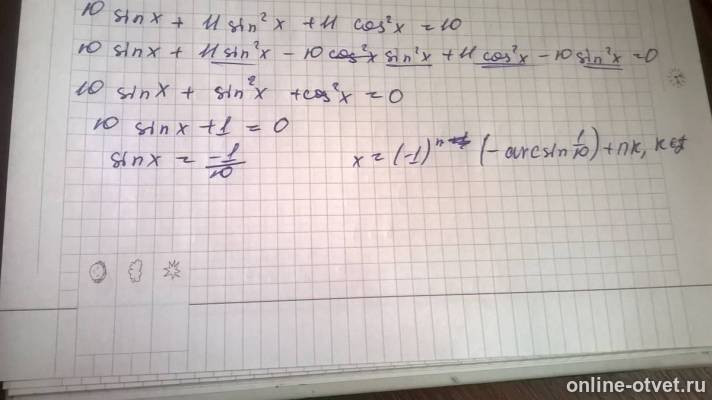 10 sin x + 11 sin² x + 11 cos² x = 10
10 sin x + 11 sin² x - 10 cos² x sin² x + 11 cos² x - 10 sin² x = 0
10 sin x + sin² x + cos² x = 0
10 sin x + 1 = 0
sin x = -1/10 x = (-1)ⁿ (- arcsin 1/10) + πk, k∈Z
online-otvet.ru